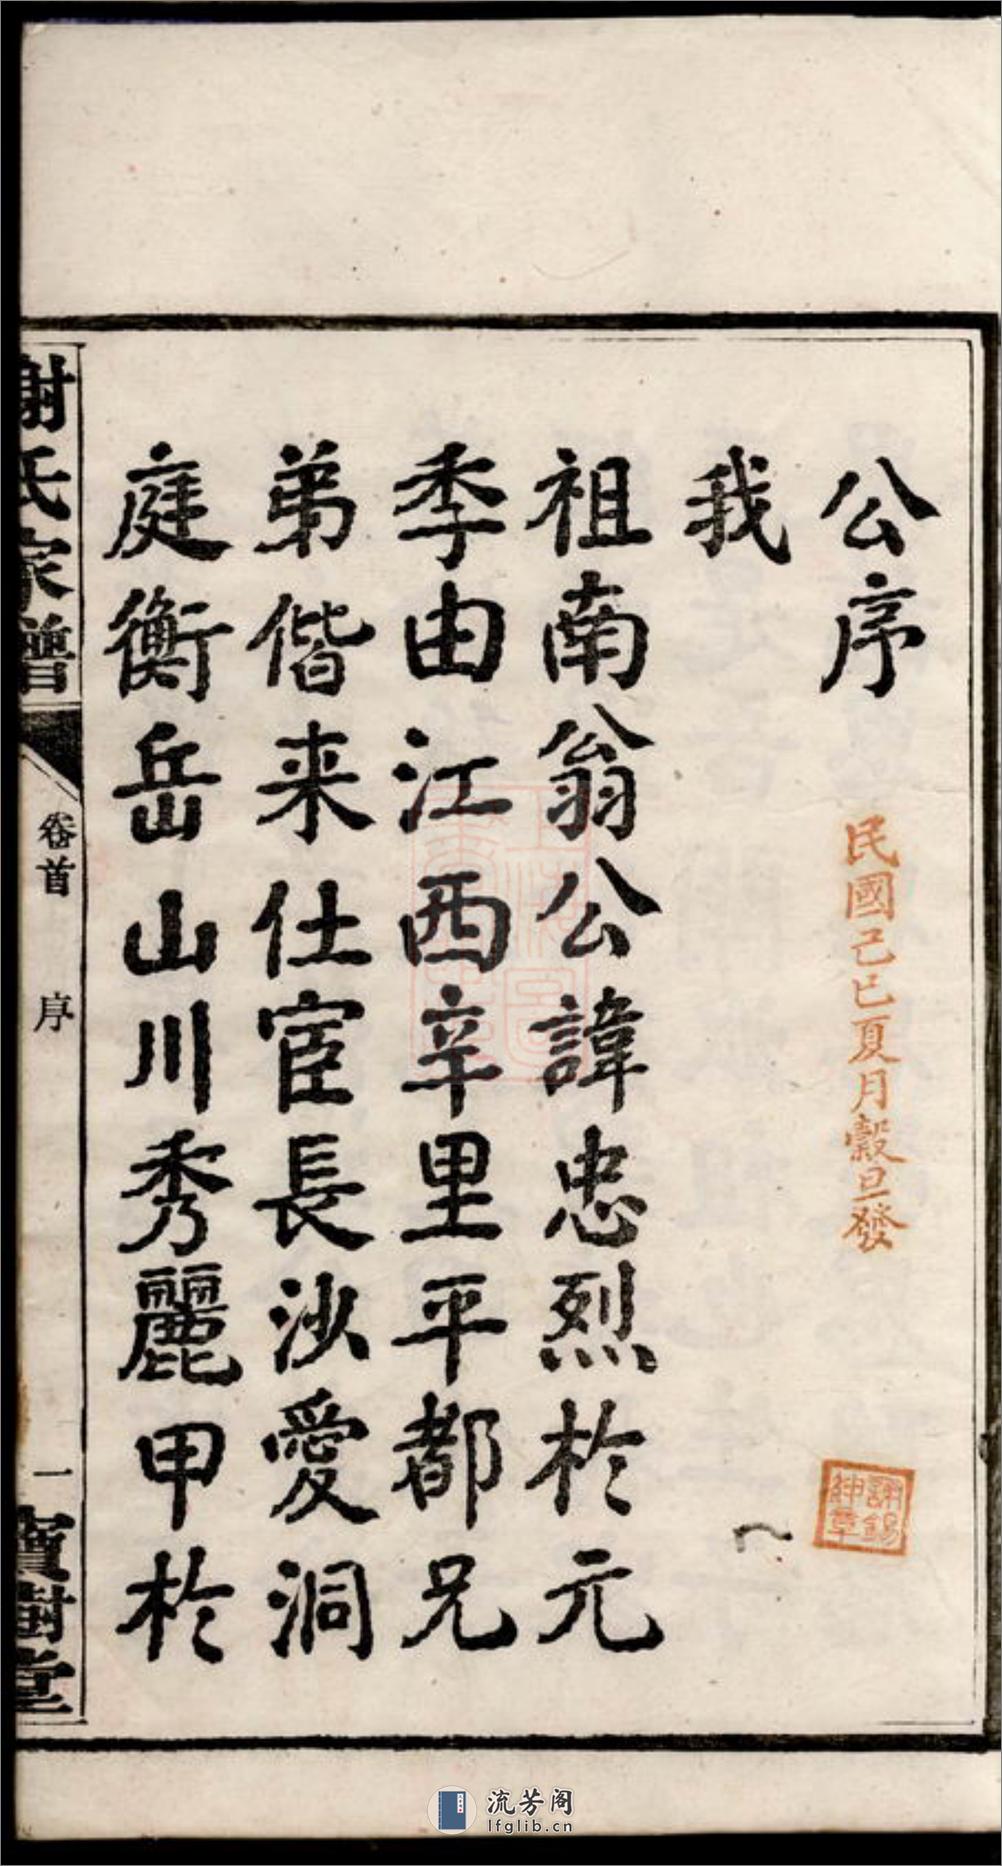 公序
民國己巳夏月穀旦發
謝錫紳章
我
祖南翁公諱忠烈於元
季由江西辛里平都兄
弟偕来仕宦長沙愛洞
庭衡岳山川秀麗甲於
謝氏家譜
卷首
序
一
寶樹堂
流芳阁
lfglib.cn